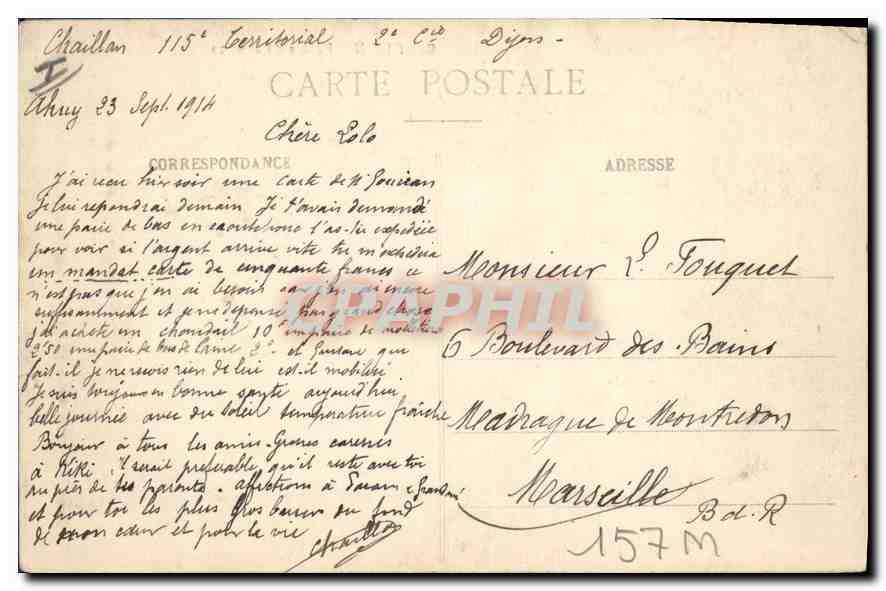 Chaillan 115e Territorial 2e Cie Dijon -
CARTE POSTALE
I
Ahuy 23 Sept. 1914
Chère Lolo
CORRESPONDANCE
J'ai reçu hier soir une carte de Mr
Je lui repondrai demain. Je t'avais demandé
une paire de bas en caoutchouc l'as-tu expédiée
pour voir si l'argent arrive vite tu m'expédiera
un mandat carte de cinquante francs ce
n'est pas que j'en ai besoin car j'en ai encore
suffisamment et je ne dépense pas grand chose
j'ai acheté un chandail 10f une paire de
2f50 une paire de bas de laine 2f. et Gustave que
fait-il je ne reçois rien de lui est-il mobilisé
Je suis toujours en bonne santé aujourd'hui
belle journée avec du soleil température fraîche
Bonjour à tous les amis. Grosses caresses
à Kiki, il serait préférable qu'il reste avec toi
auprès de tes parents. affections à
et pour toi les plus gros baisers du fond
de mon cœur et pour la vie
Chaillan
ADRESSE
Monsieur L. Fouquet
6 Boulevard des Bains
Madrague de Montredon
Marseille
B d. R
157M
CPAPHIL